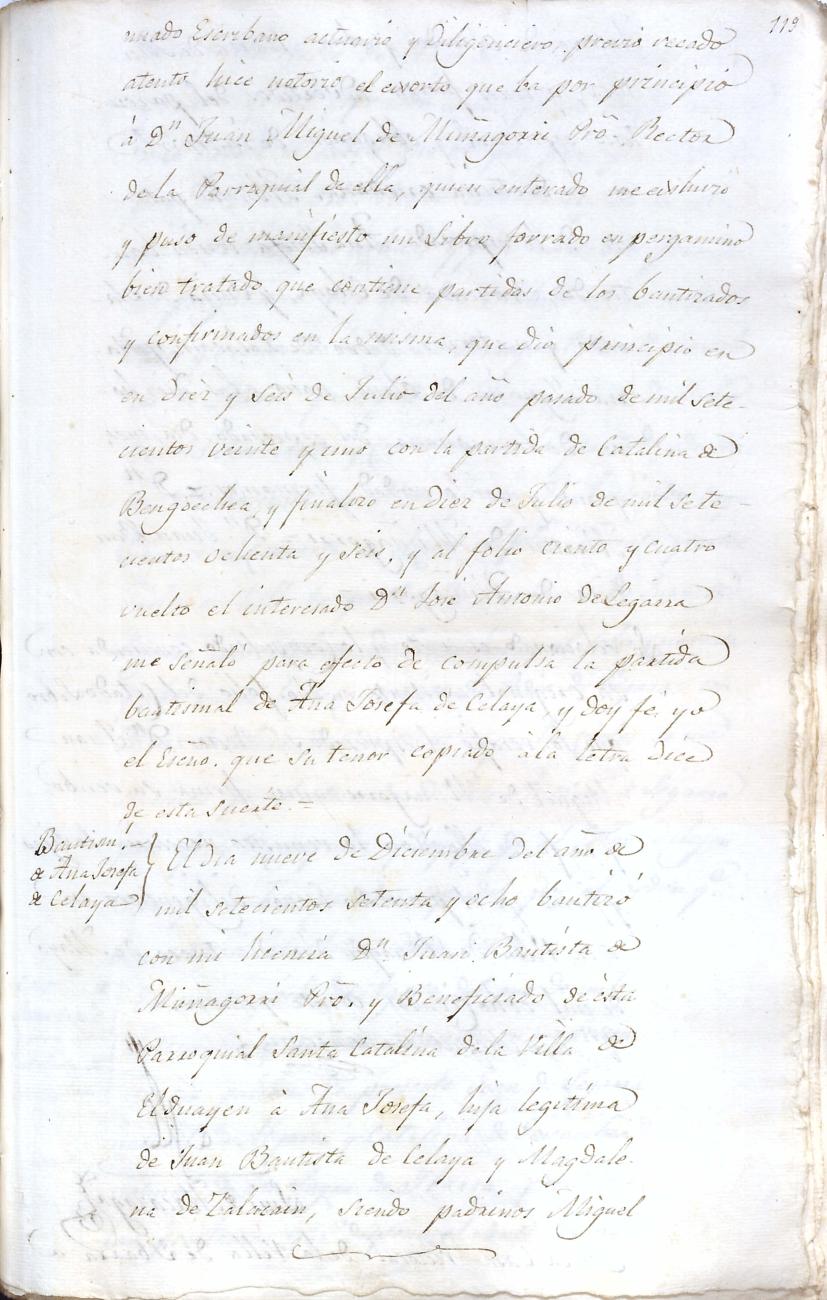 119
nuado Escribano actuario y Diligenciero, previo recado
atento hice notorio el exorto que ba por principio
à Dn. Juan Miguel de Muñagorri Pro. Rector
de la Parroquial de ella, quien enterado me exshivio
y puso de manifiesto un Libro forrado en pergamino
bien tratado que contiene partidas de los bautizados
y confirmados en la misma, que dio principio en
en diez y seis de Julio del año pasado de mil sete-
cientos veinte y uno con la partida de Catalina de
Bengoechea, y finalizo en diez de Julio de mil sete-
cientos ochenta y seis, y al folio ciento y cuatro
vuelto el interesado Dn. José Antonio de Legarra
me señaló para efecto de compulsa la partida
bautismal de Ana Josefa de Celaya, y doy fé, yo
el Esčno. que su tenor copiado à la letra dice
de esta suerte. =
Bautism.
de Ana Josefa
de Celaya
El dia nueve de Diciembre del año de
mil setecientos setenta y ocho bautizó
con mi licencia Dn. Juan Bautista de
Muñagorri Pro. y Beneficiado de ésta
Parroquial Santa Catalina de la Villa de
Elduayen à Ana Josefa, hija legitima
de Juan Bautista de Celaya y Magdale-
na de Zalacain, siendo padrinos Miguel